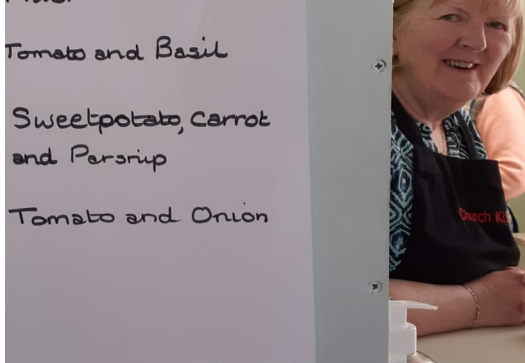 Tomato and Basil
Sweetpotato, Carrot
and Parsnip
Tomato and Onion
Church Ki